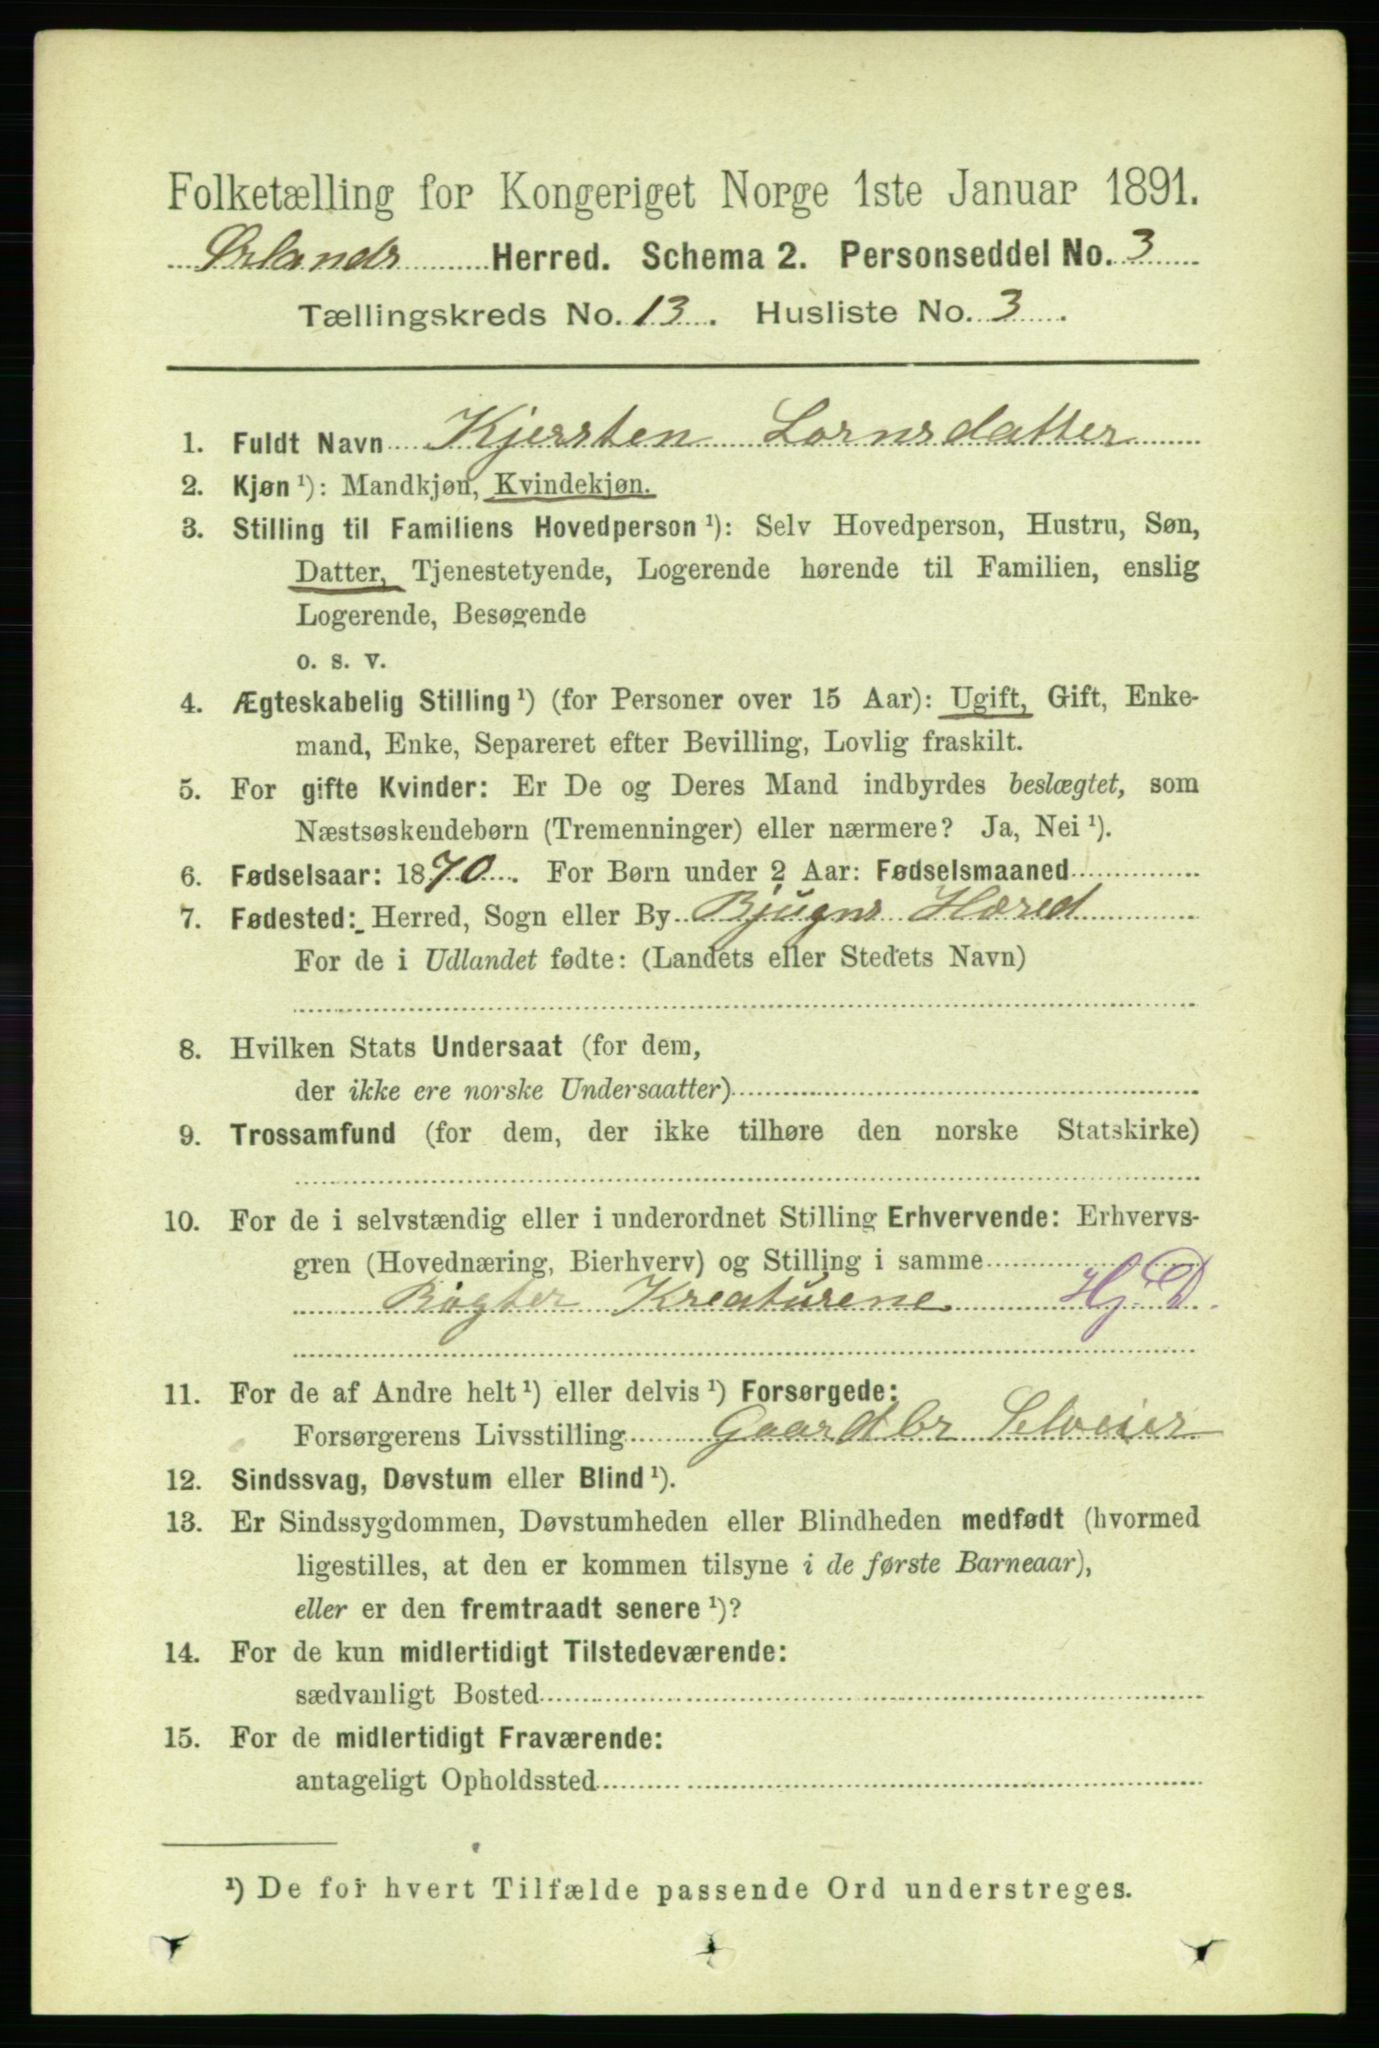 Folketælling for Kongeriget Norge 1ste Januar 1891.
Ørlands Herred. Schema 2. Personseddel No. 3
Tællingskreds No. 13. Husliste No. 3.
1. Fuldt Navn Kjersten Lornsdatter
2. Kjøn ¹): Mandkjøn, Kvindekjøn.
3. Stilling til Familiens Hovedperson ¹): Selv Hovedperson, Hustru, Søn,
Datter, Tjenestetyende, Logerende hørende til Familien, enslig
Logerende, Besøgende
o. s. v.
4. Ægteskabelig Stilling ¹) (for Personer over 15 Aar): Ugift, Gift, Enke-
mand, Enke, Separeret efter Bevilling, Lovlig fraskilt.
5. For gifte Kvinder: Er De og Deres Mand indbyrdes beslægtet, som
Næstsøskendebørn (Tremenninger) eller nærmere? Ja, Nei ¹).
6. Fødselsaar: 1870. For Børn under 2 Aar: Fødselsmaaned
7. Fødested: Herred, Sogn eller By Bjugns Hered
For de i Udlandet fødte: (Landets eller Stedets Navn)
8. Hvilken Stats Undersaat (for dem,
der ikke ere norske Undersaatter)
9. Trossamfund (for dem, der ikke tilhøre den norske Statskirke)
10. For de i selvstændig eller i underordnet Stilling Erhvervende: Erhvervs-
gren (Hovednæring, Bierhverv) og Stilling i samme
Røgter Kreaturene Hj. D.
11. For de af Andre helt ¹) eller delvis ¹) Forsørgede:
Forsørgerens Livsstilling Gaardbr Selveier
12. Sindssvag, Døvstum eller Blind ¹).
13. Er Sindssygdommen, Døvstumheden eller Blindheden medfødt (hvormed
ligestilles, at den er kommen tilsyne i de første Barneaar),
eller er den fremtraadt senere ¹)?
14. For de kun midlertidigt Tilstedeværende:
sædvanligt Bosted
15. For de midlertidigt Fraværende:
antageligt Opholdssted
¹) De for hvert Tilfælde passende Ord understreges.